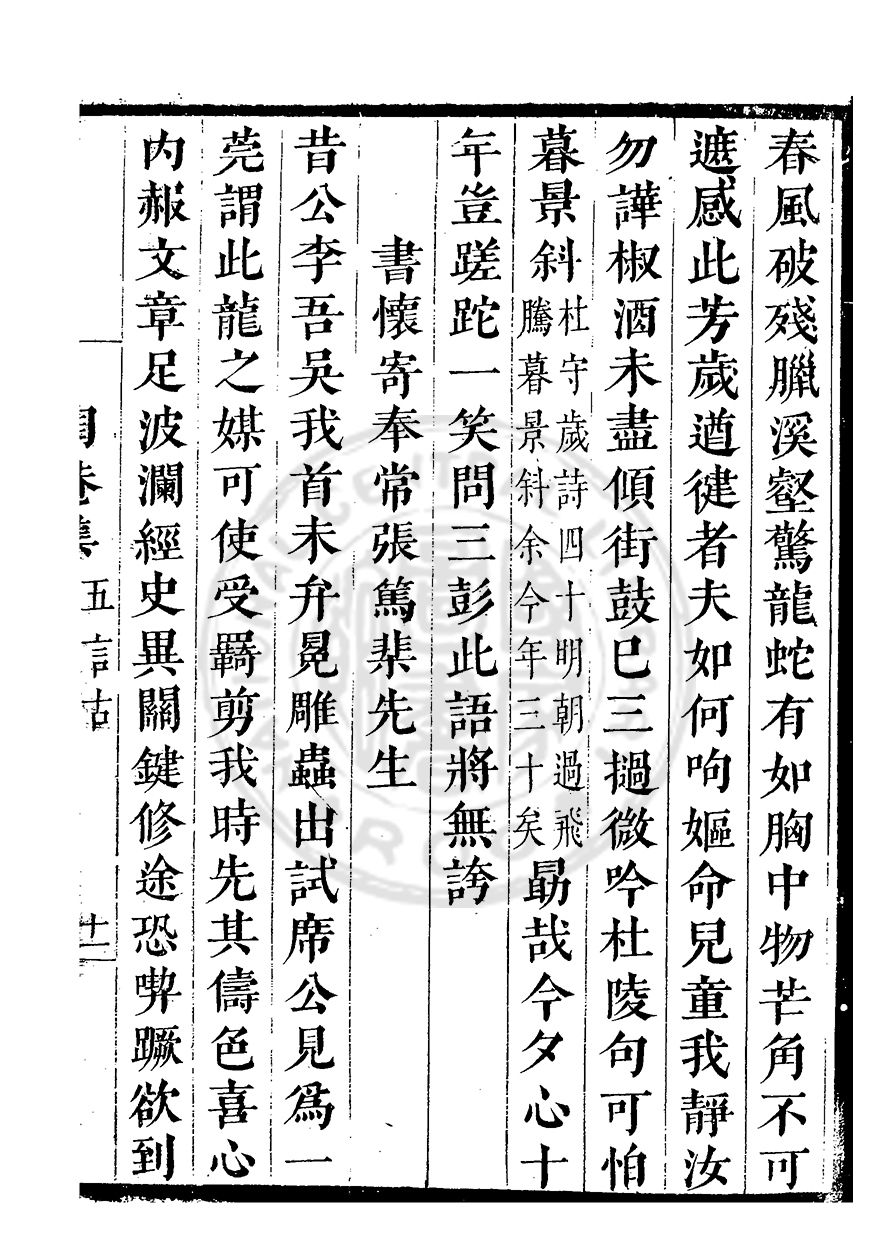 春風破殘臘溪壑驚龍蛇有如胸中物芒角不可
遮感此芳歲遒徤者夫如何呴嫗命兒童我靜汝
勿譁椒酒未盡傾街鼓巳三撾微吟杜陵句可怕
暮景斜杜守歲詩四十明朝過飛騰暮景斜余今年三十矣勗哉今夕心十
年豈蹉跎一笑問三彭此語將無誇
書懷寄奉常張篤棐先生
昔公李吾吳我首未弁冕雕蟲出試席公見爲一
莞謂此龍之媒可使受羇剪我時先其儔色喜心
內赧文章足波瀾經史異關鍵修途恐蹶欲到
菴集 五言古 十一